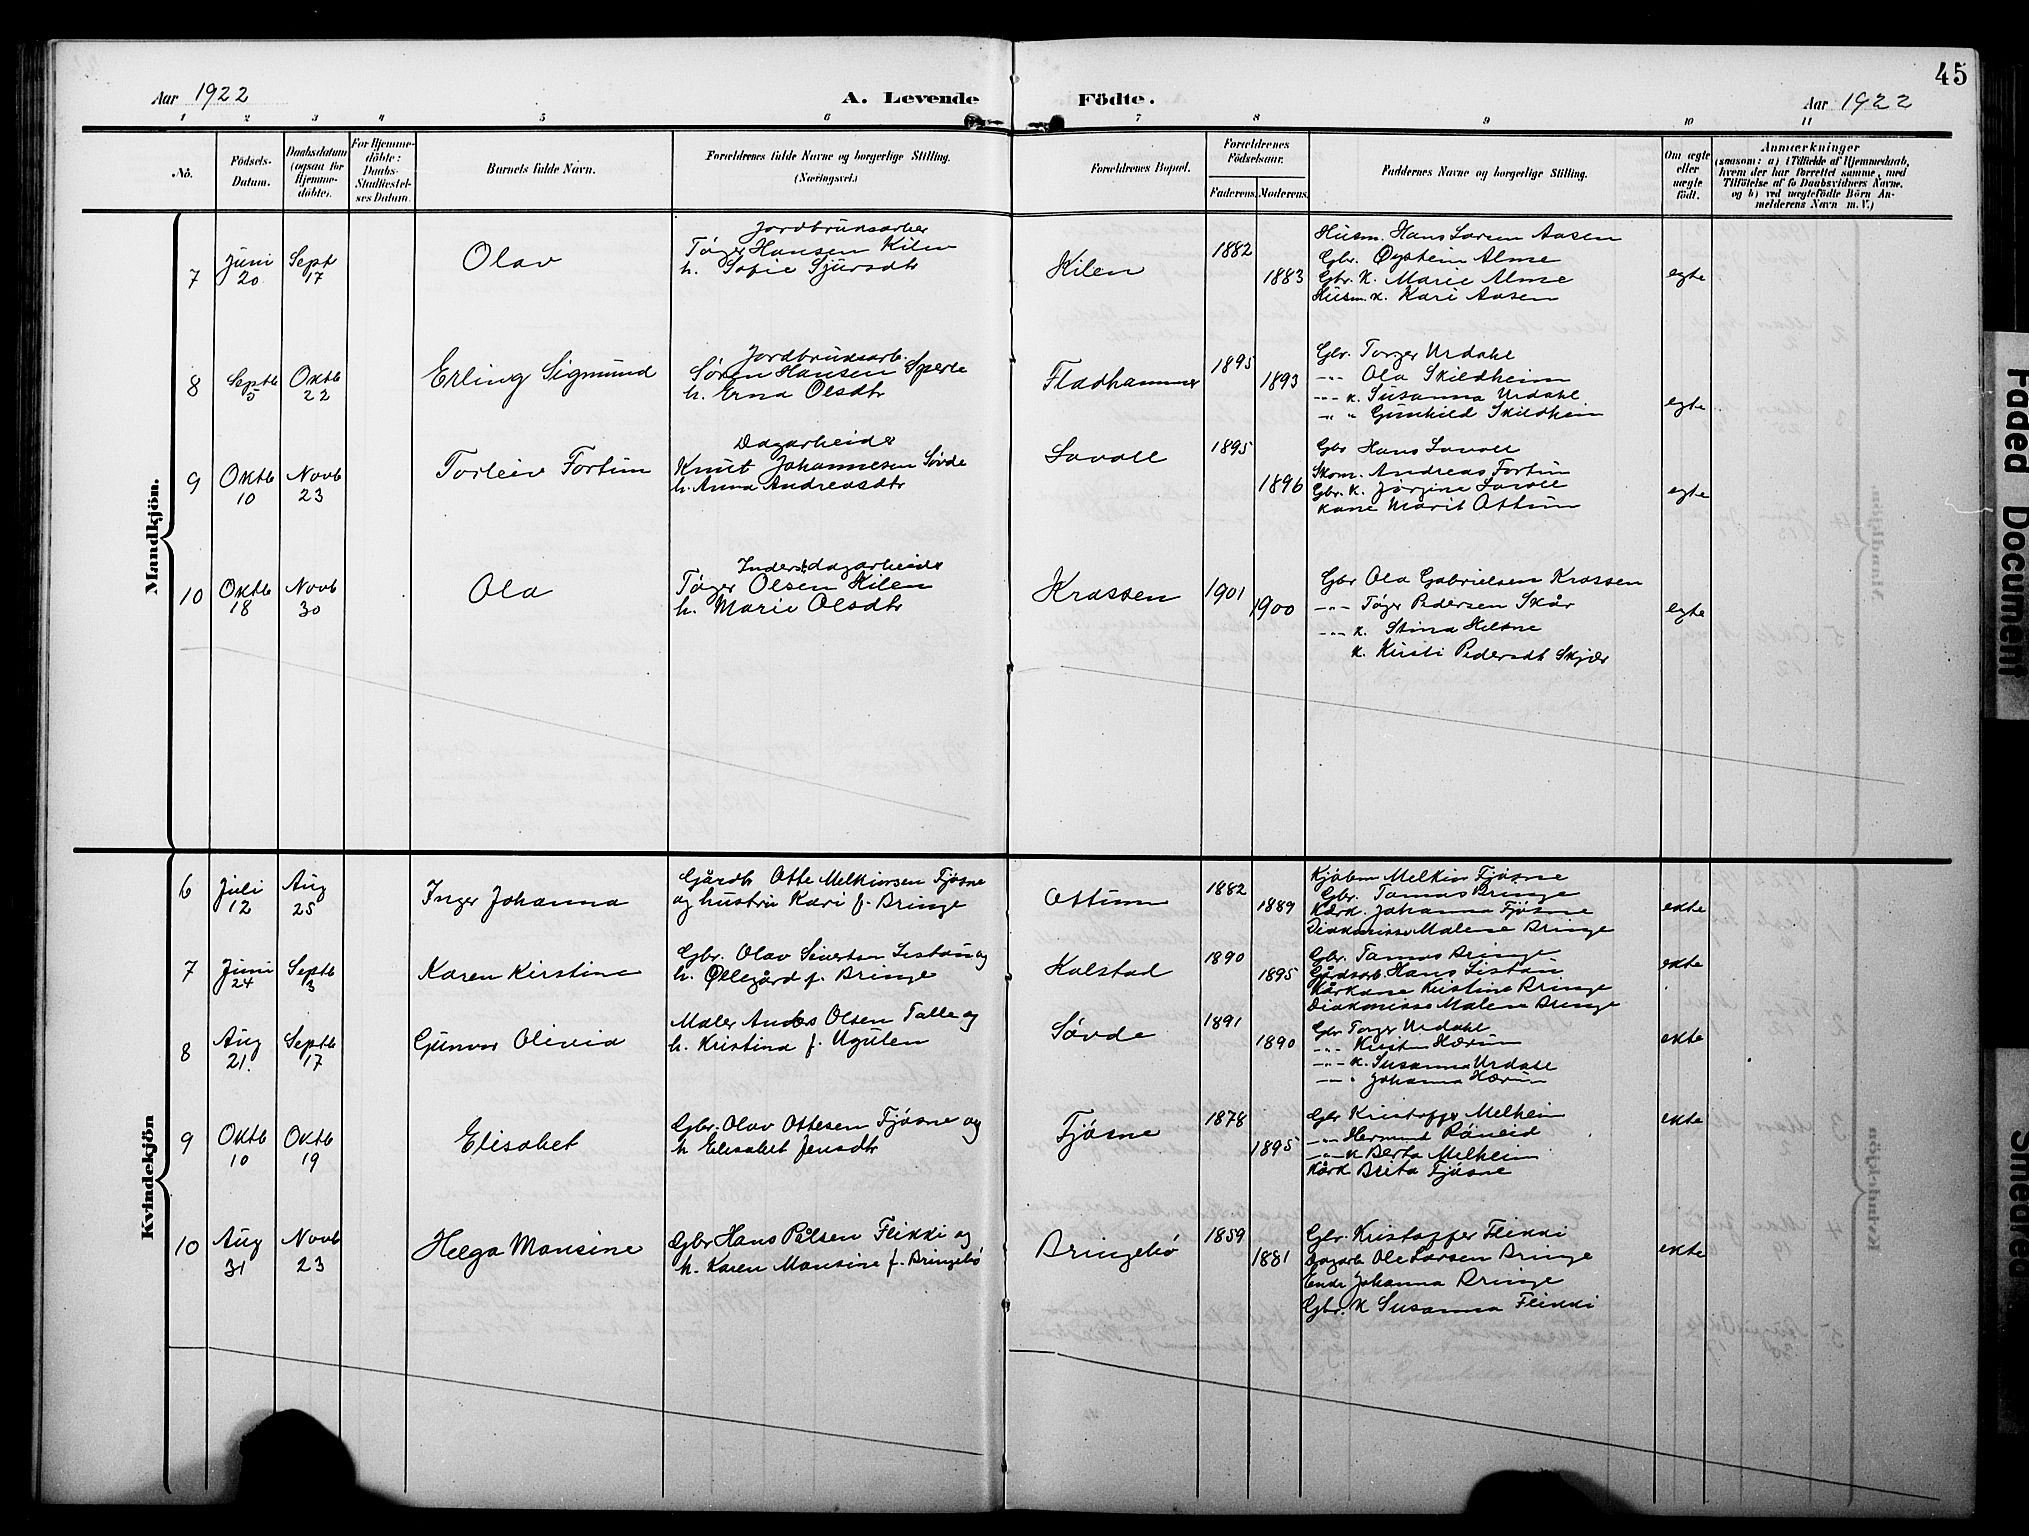 45
Aar 1922
A. Levende
Födte.
Aar 1922
1 2 3 4 5 6 7 8 9 10 11
No.
Födsels-Datum.
Daabsdatum (ogsaa for Hjemme-döbte).
For Hjemme-döbte: Daabs-Stadfæstel-ses Datum.
Barnets fulde Navn.
Forældrenes fulde Navne og borgerlige Stilling. (Næringsvei.)
Forældrenes Bopæl.
Forældrenes Födselsaar.
Faderens. Moderens.
Faddernes Navne og borgerlige Stilling.
Om ægte eller uægte födt.
Anmærkninger
(saasom: a) i Tilfælde af Hjemmedaab,
hvem der har forrettet samme, med
Tilföielse af to Daabsvidners Navne,
og b) ved uægtefödte Börn An-
melderens Navn m. V.)
Mandkjön.
7 Juni 20 Sept 17 Olav
Jordbruksarbei
Tøger Hansen Kilen
h. Sofie Sjursdtr
Kilen 1882 1883
Husm. Hans Loren Aasen
Gbr. Øystein Alme
Gbr. K. Marie Alme
Husm. K. Kari Aasen
egte
8 Septb 5 Oktb 22 Erling Sigmund
Jordbruksarb.
Søren Hansen Sperle
h. Erna Olsdtr
Fladhammer 1895 1893
Gbr. Torger Urdahl
-"- Ola Skildheim
-"- K. Susanna Urdahl
" " Gunhild Skildheim
egte
9 Oktb 10 Novb 23 Torleiv Fortun
Dagarbeider
Knut Johannesen Søvde
h. Anna Andreasdtr
Lavoll 1895 1896
Gbr Hans Lavoll
Skom. Andreas Fortun
Gbr. K. Jørgine Lavoll
Kone Marit Ottum
egte
10 Oktb 18 Novb 30 Ola
Inderst. dagarbeider
Tøger Olsen Kilen
h. Marie Olsdtr
Krossen 1901 1900
Gbr Ola Gabrielsen Krossen
-"- Tøger Pedersen Skår
-"- K. Stina
K. Kirsti Pedersdt Skjær
egte
Kvindekjön
6 Juli 12 Aug 25 Inger Johanna
Gårdb Otte Melkiorsen Fjøsne
og hustru Kari f. Bringe
Ottum 1882 1889
Kjøbm Melkior Fjøsne
Gbr. Tomas Bringe
Kård. Johanna Fjøsne
Diakonisse Malene Bringe
ekte
7 Juni 24 Septb 3 Karen Kirstine
Gbr. Olav Sivertsen Listau og
h. Ollegård f. Bringe
Kolstad 1890 1895
Gbr. Tomas Bringe
Gårdsarb Hans Listau
Kårkone Kristine Bringe
Diakonisse Malene Bringe
ekte
8 Aug 21. Septb 17 Gunvor Olivia
Maler Anders Olsen Talle og
h. Kristina f. Ugulen
Søvde 1891 1890
Gbr Torger Urdahl
-"- Kristen Hærum
-"- K. Susanna Urdahl
-"- " Johanna Hærum
ekte
9 Oktb 10 Oktb 19 Elisabet
Gbr. Olav Ottesen Fjøsne og
h Elisabet Jensdtr
Fjøsne 1878 1895
Gbr Kristoffer Melheim
-"- Hermund Råneid
-"- K Berta Melheim
Kård Brita Fjøsne
ekte
10 Aug 31 Novb 23 Helga Monsine
Gbr Hans Pålsen Flikki og
h. Karen Monsine f. Bringebø
Bringebø 1859 1881
Gbr. Kristoffer Flikki
Dagarb Ole Larsen Bringe
Enke Johanna Bringe
Gbr. K Susanna Flikki
ekte
Faded Document
Smeared